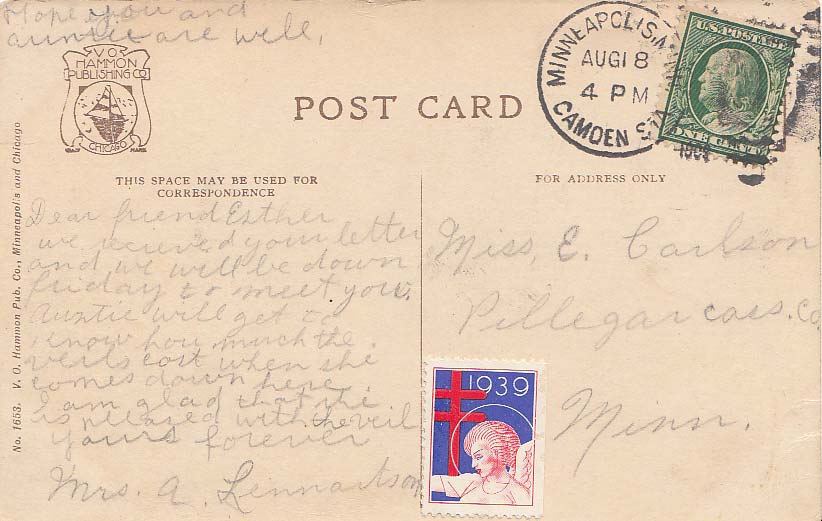 Hope you and
auntie are well,
V O
HAMMON
PUBLISHING CO
CHICAGO
TRADE MARK
POST CARD
MINNEAPOLIS, MINN.
AUG 18
4 PM
CAMDEN STA.
U.S. POSTAGE
ONE CENT
THIS SPACE MAY BE USED FOR
CORRESPONDENCE
FOR ADDRESS ONLY
Dear friend Esther
we recieved your letter
and we will be down
friday to meet you.
Auntie will get to
know how much the
veils cost when she
comes down here.
I am glad that she
is pleased with the veil
yours forever
Mrs. A. Lennartson
Miss, E. Carlson
Pillegar cass. Co.
Minn.
1939
No. 1653. V. O. Hammon Pub. Co., Minneapolis and Chicago